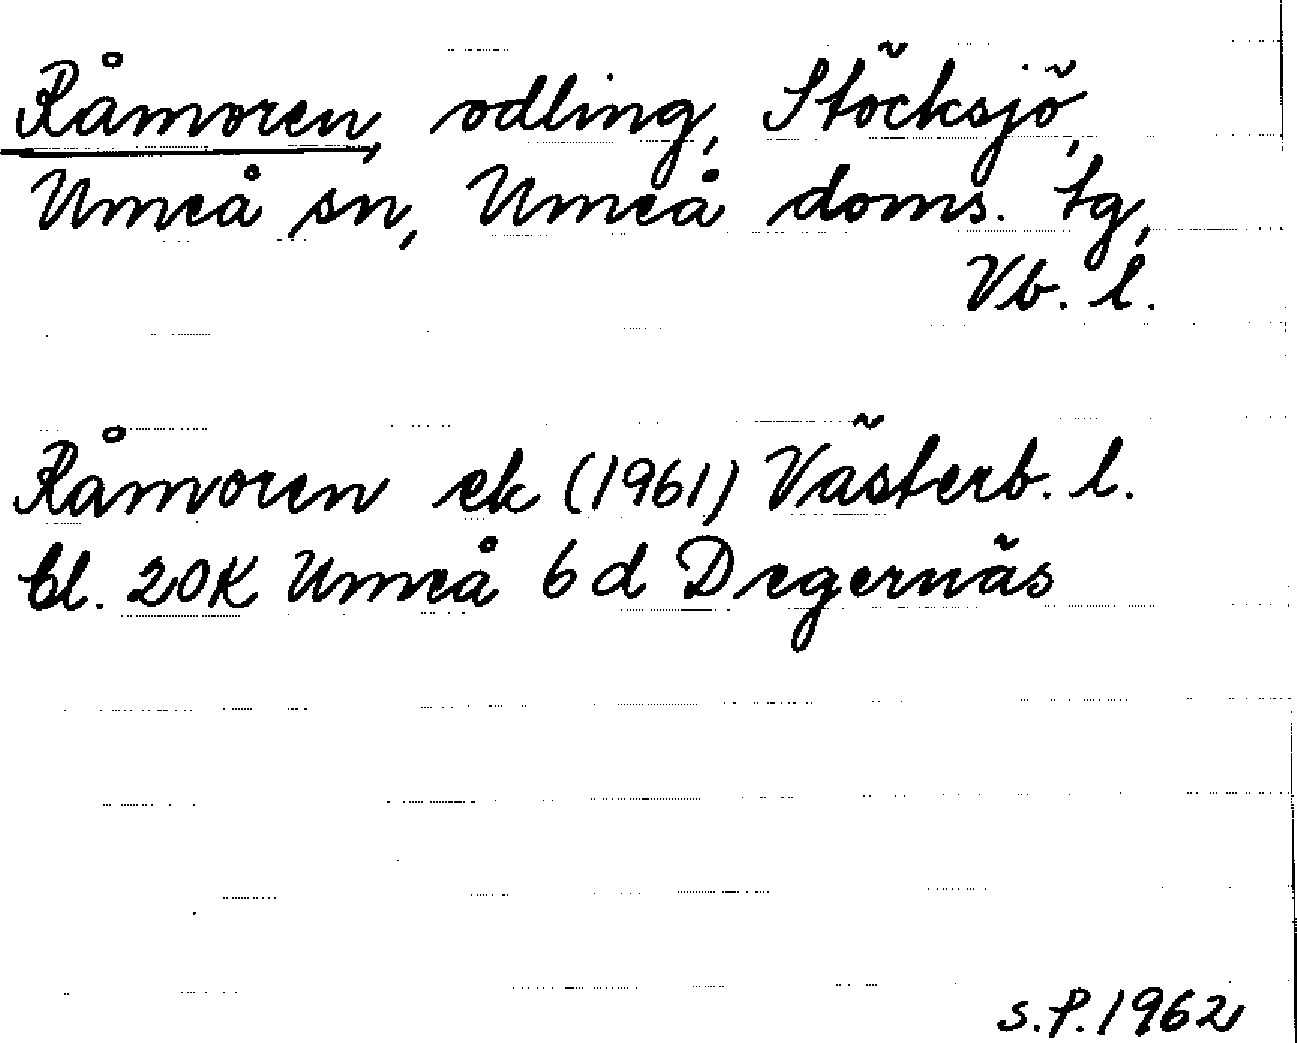 Råmoren, odling, Stöcksjö,
Umeå sn, Umeå doms. tg,
Vb. l.
Råmoren ek (1961) Västerb. l.
bl. 20K Umeå 6d Degernäs
s.P. 1962